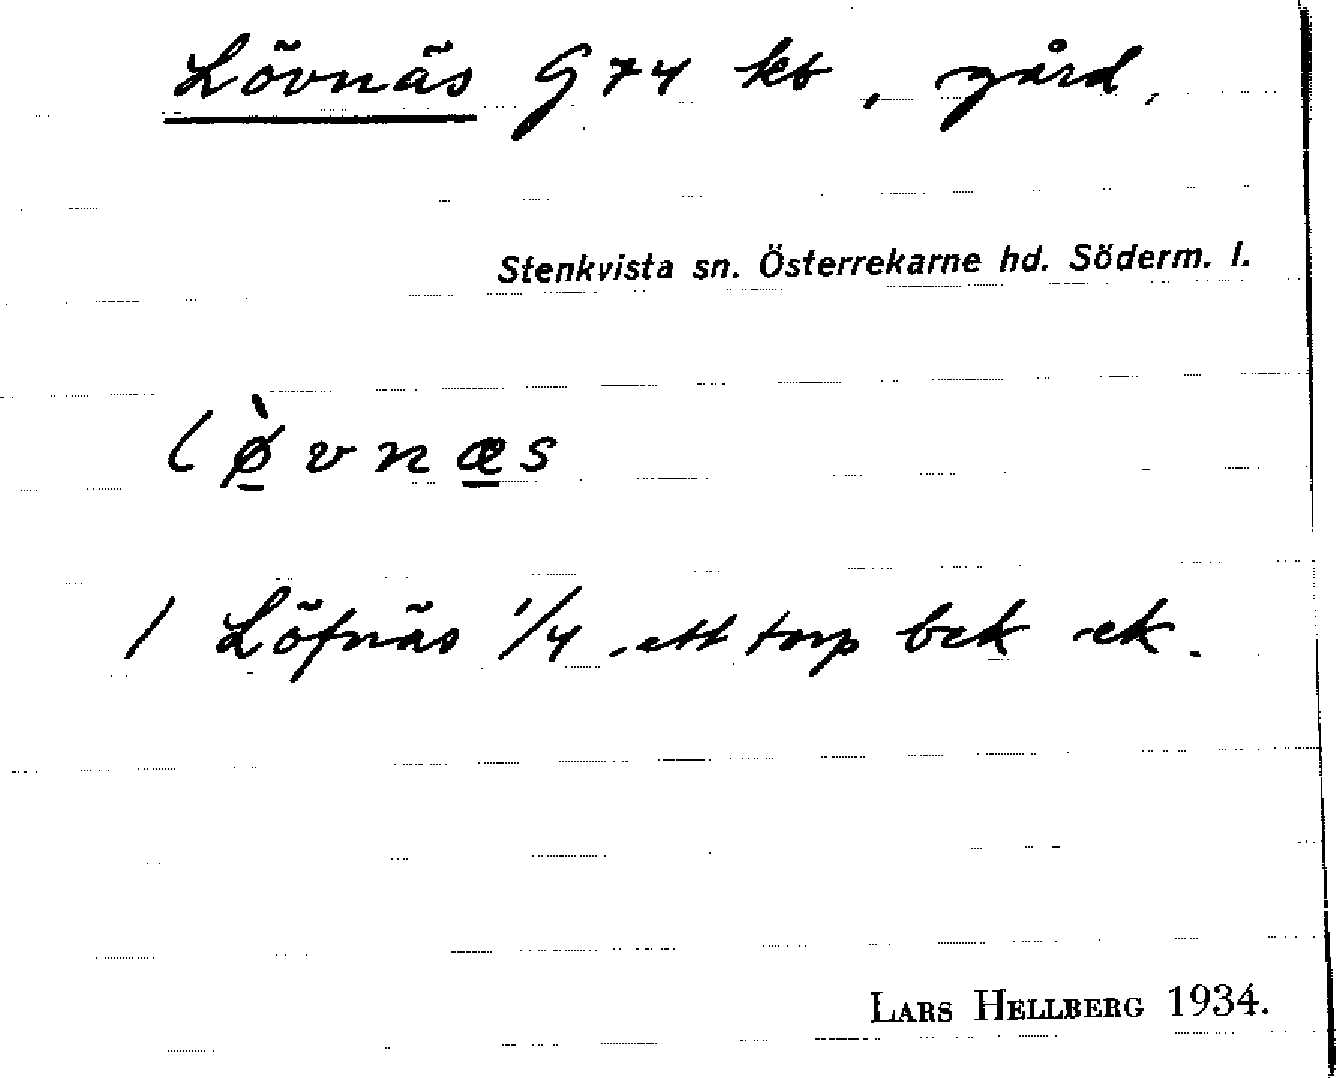 Lövnäs G 74 kb, gård,
Stenkvista sn. Österrekarne hd. Söderm. l.
lø̱̀vnæ̱s
1 Löfnäs 1/4, ett torp bek ek.
LARS HELLBERG 1934.